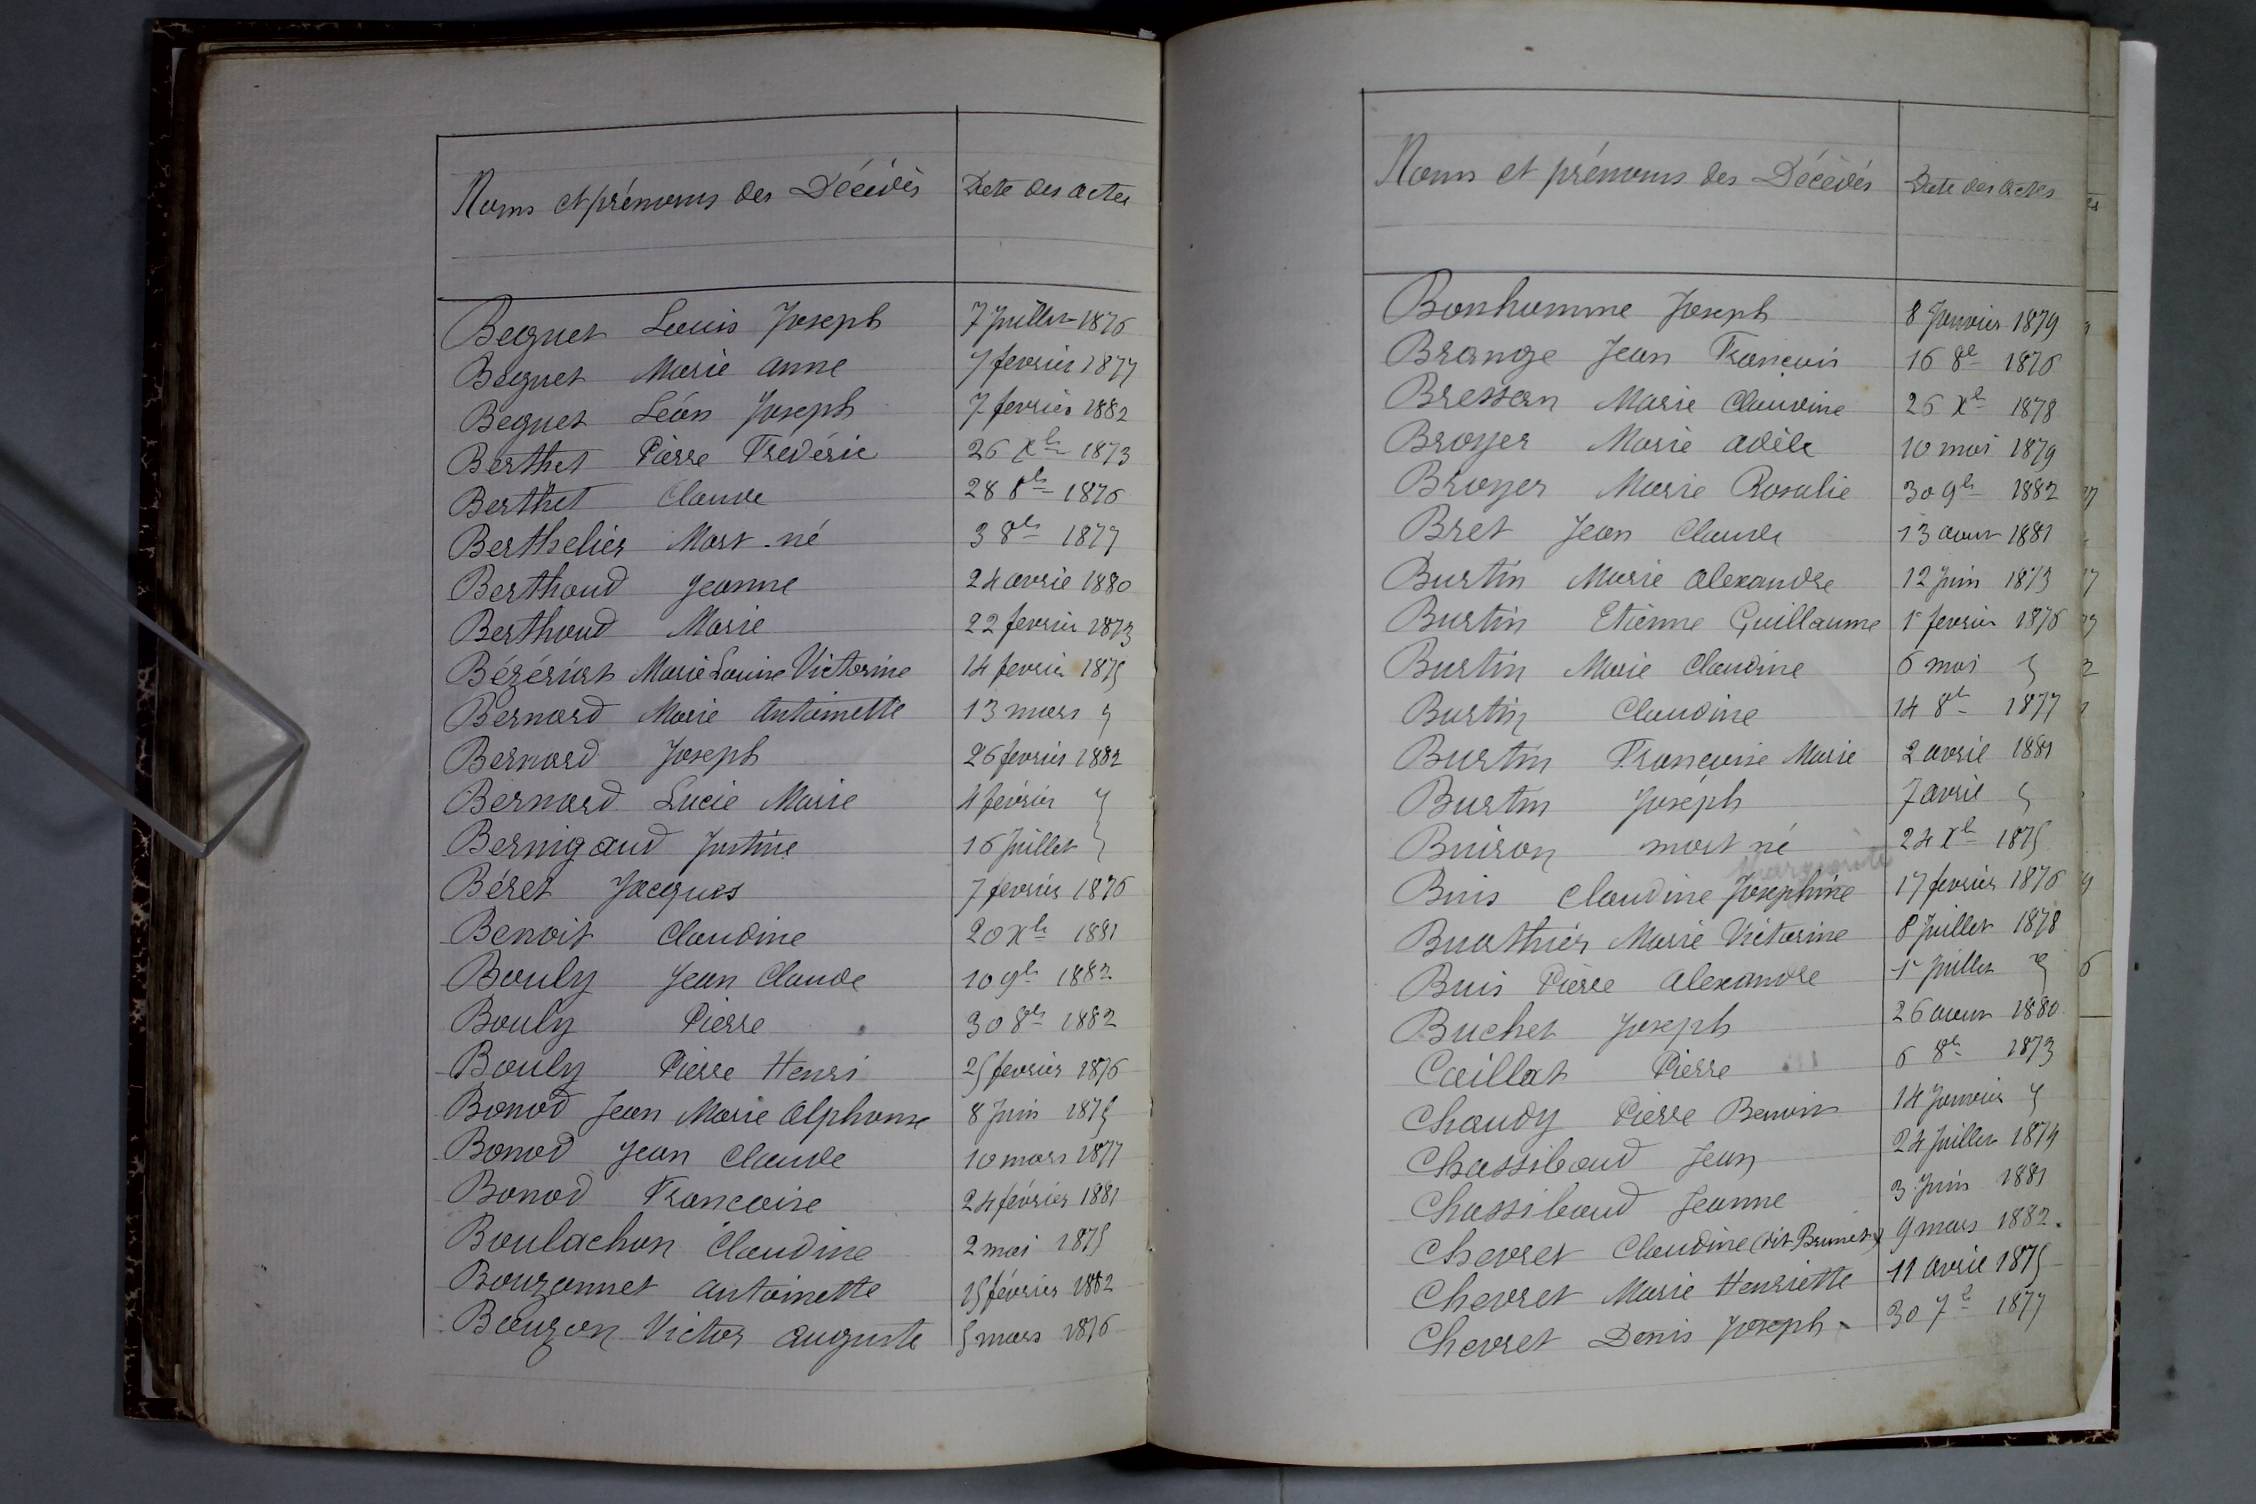 Noms et prénoms des Décédés Date des actes
Beguet Louis Joseph 7 Juillet 1876
Beguet Marie anne 7 fevrier 1877
Beguet Léon Joseph 7 fevrier 1882
Berthet Pierre Frédéric 26 Xbr 1873
Berthet Claude 28 8br 1876
Berthelier Mort-né 3 8br 1877
Berthoud Jeanne 24 avril 1880
Berthoud Marie 22 fevrier 1873
Bézériat Marie Louise Victorine 14 fevrier 1875
Bernard Marie Antoinette 13 mars "
Bernard Joseph 26 fevrier 1882
Bernard Lucie Marie 4 février "
Bernigaud Justine 16 Juillet "
Béret Jacques 7 fevrier 1876
Benoit Claudine 20 Xbr 1881
Bouly Jean Claude 10 9br 1882
Bouly Pierre 30 8br 1882
Bouly Pierre Henri 25 fevrier 1876
Bonod Jean Marie Alphonse 8 Juin 1875
Bonod Jean Claude 10 mars 1877
Bonod Francoise 24 février 1881
Boulachon Claudine 2 mai 1875
Bouzonnet antoinette 15 février 1882
Bouzon Victor auguste 5 mars 1876
Noms et prénoms des Décédés Date des actes
Bonhomme Joseph 8 Janvier 1879
Brange Jean François 16 8e 1876
Bressan Marie Claudine 26 Xbr 1878
Broyer Marie adèle 10 mai 1879
Broyer Marie Rosalie 30 9br 1882
Bret Jean Claude 13 aout 1881
Burtin Marie alexandre 12 Juin 1873
Burtin Etienne Guillaume 1r fevrier 1876
Burtin Marie Claudine 6 mai "
Burtin Claudine 14 8br 1877
Burtin Francoise Marie 2 avril 1881
Burtin Joseph 7 avril "
Buison mort né 24 Xbr 1875
Marguerite
Buis Claudine Josephine 17 fevrier 1876
Buathier Marie Victorine 8 Juillet 1878
Buis Pierre Alexandre 1r Juillet "
Buchet Joseph 26 aout 1880
Caillat Pierre 6 8br 1873
Chaudy Pierre Benoit 14 Janvier "
Chassiboud Jean 24 Juillet 1874
Chassiboud Jeanne 3 Juin 1881
Chevret Claudine (dit Brunet) 9 mars 1882.
Chevret Marie Henriette 11 avril 1875
Chevret Denis Joseph 30 7e 1877